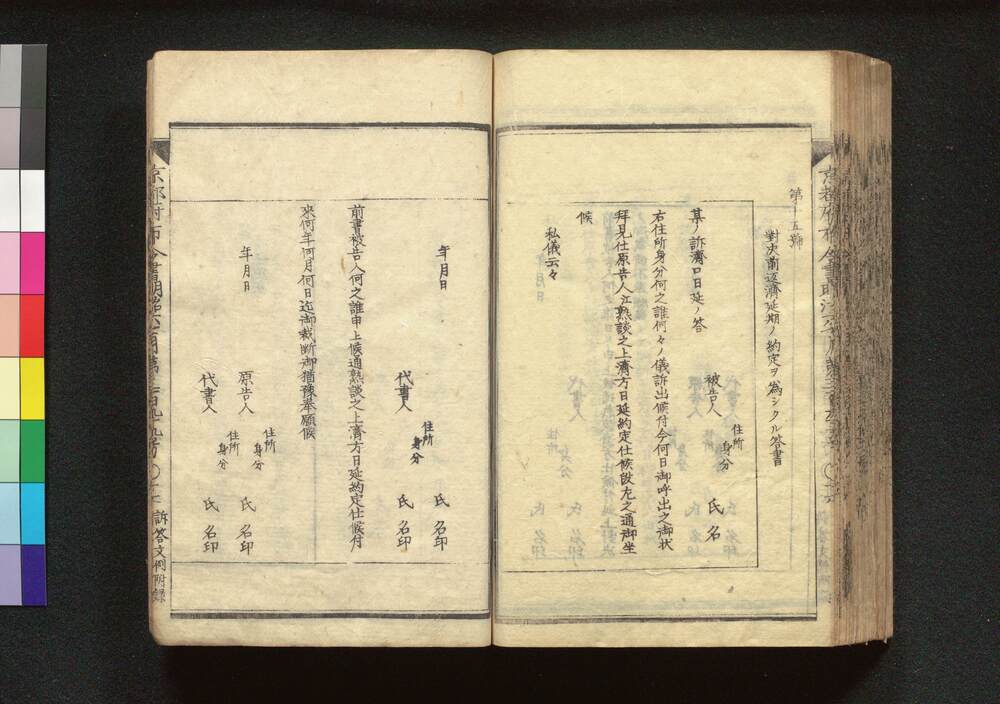 第十五號
對决前返濟延期ノ約定ヲ爲シタル答書
某ノ訴濟口日延ノ答
住所
身分
被告人 氏名
右住所身分何之誰何々ノ儀訴出候付今何日御呼出之御状
拜見仕原告人江熟談之上濟方日延約定仕候故左之通御坐
候
私儀云々
年月日
氏名印
住所
身分
代書人 氏名印
前書被告人何之誰申上候通熟談之上濟方日延約定仕候付
來何年何月何日迄御裁斷御猶豫奉願候
年月日
住所
身分
原告人 氏名印
住所
身分
代書人 氏名印
訴答文例附録